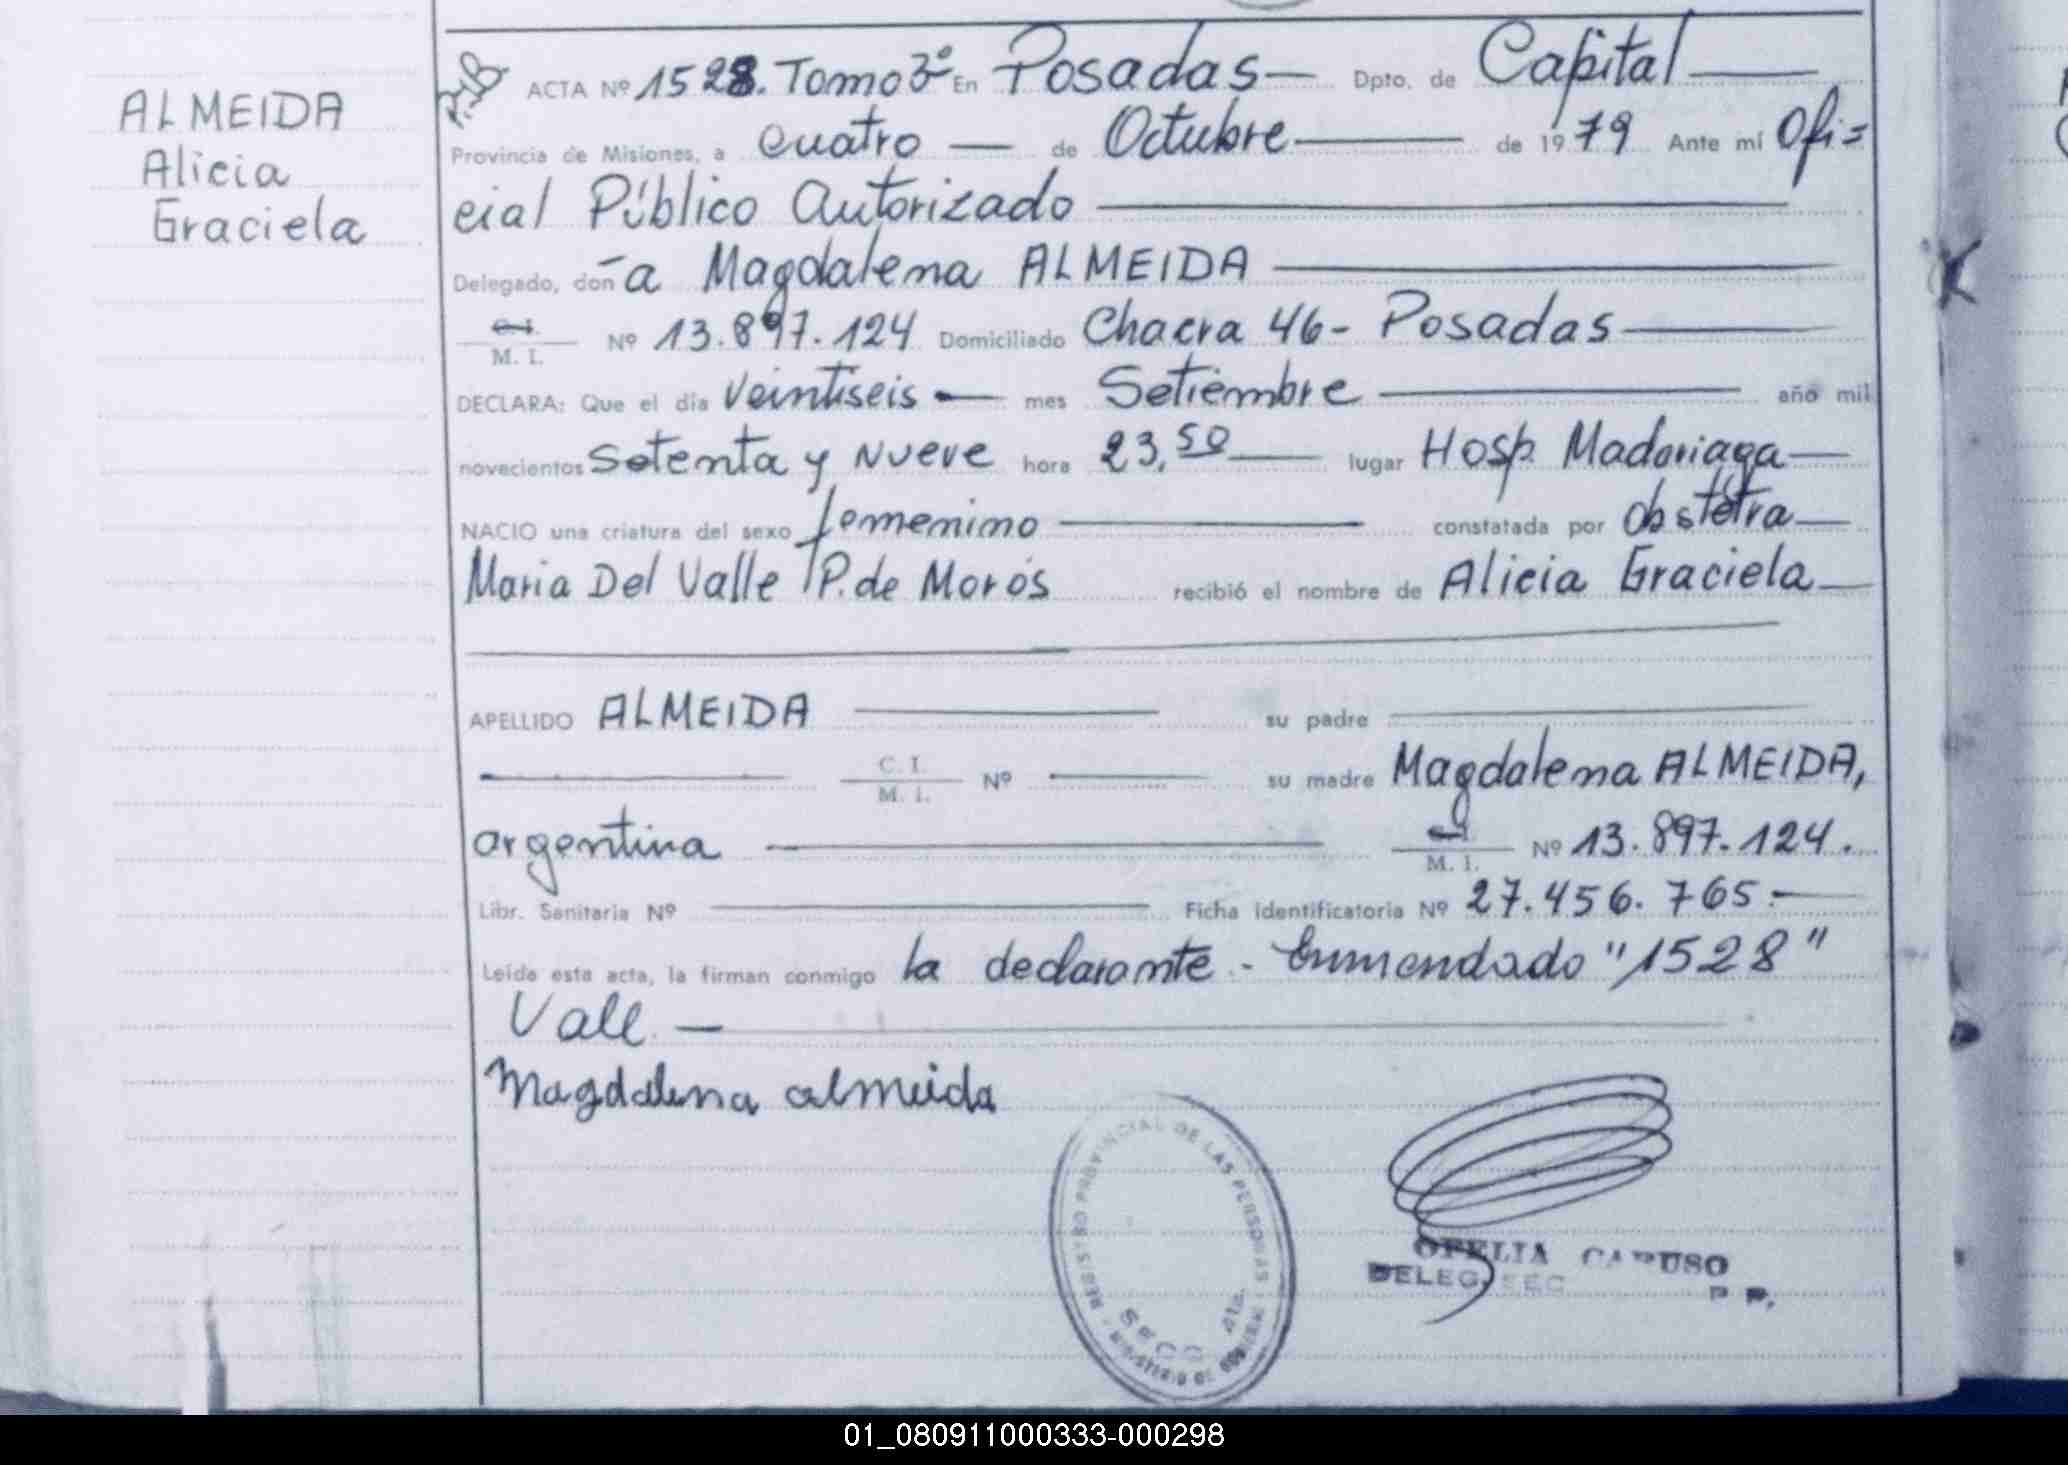 ALMEIDA
Alicia
Graciela
ACTA Nº 1528. Tomo 3º En Posadas — Dpto. de Capital —
Provincia de Misiones, a cuatro — de Octubre — de 1979 Ante mí Ofi=
cial Público Autorizado —
Delegado, doña Magdalena ALMEIDA —
C. I.
M. I. Nº 13.897.124 Domiciliado Chacra 46- Posadas —
DECLARA: Que el día Veintiseis — mes Setiembre — año mil
novecientos Setenta y Nueve hora 23,50 — lugar Hosp. Madariaga —
NACIO una criatura del sexo femenino — constatada por obstetra —
Maria Del Valle P. de Morós recibió el nombre de Alicia Graciela —
APELLIDO ALMEIDA — su padre —
— C. I.
M. I. Nº — su madre Magdalena ALMEIDA,
argentina — M. I. Nº 13.897.124.
Libr. Sanitaria Nº — Ficha identificatoria Nº 27.456.765.—
Leída esta acta, la firman conmigo la declarante - Enmendado "1528"
Vale. —
Magdalena almeida
REGISTRO PROVINCIAL DE LAS PERSONAS
OFELIA CARUSO
DELEG. SEC
01_080911000333-000298